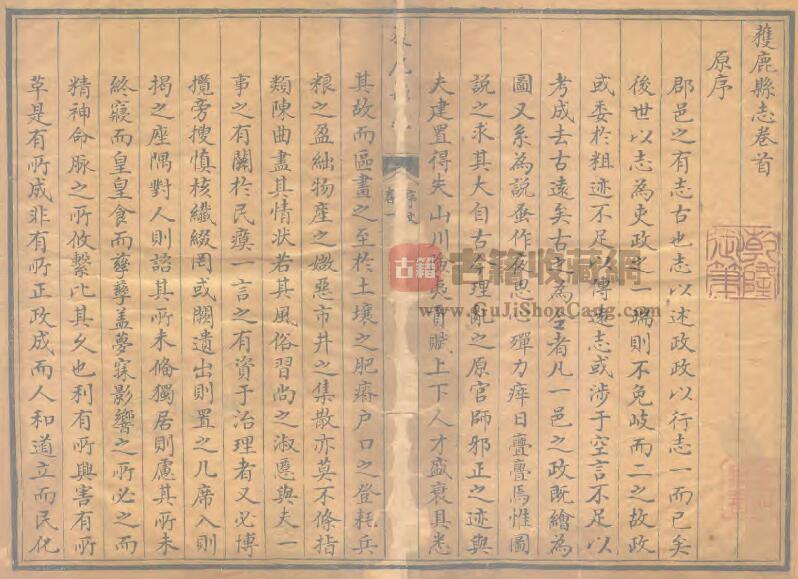 獲鹿縣志卷首
原序
郡邑之有志古也志以述政政以行志一而已矣
後世以志為吏政之一端則不免岐而二之故政
或委於粗迹不足以傳遠志或涉于空言不足以
考成去古遠矣古之為者凡一邑之政既繪為
圖又系為說蚤作夜思殫力瘁日亹亹焉惟圖
說之求其大自古今理亂之原官師邪正之迹與
夫建置得失山川險夷貢賦上下人才盛衰具悉
其故而區畫之至於土壤之肥瘠户口之登耗兵
粮之盈絀物產之媺惡市井之集散亦莫不條指
類陳曲盡其情状若其風俗習尚之淑慝與夫一
事之有關於民瘼一言之有資于治理者又必博
攬旁搜慎核纖綴罔或闕遺出則置之几席入則
揭之座隅對人則詻其所未脩獨居則慮其所未
終寢而皇皇食而孳孳盖夢寐影響之所必之而
精神命脉之所攸繫比其久也利有所興害有所
革是有所成非有所正政成而人和道立而民化
乾隆
古籍
古籍收藏網
www.GuJiShouCang.com